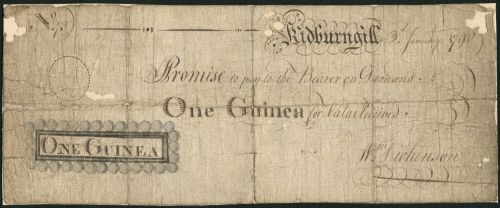 No.
Kidburngill 3d. January 1790
Promise to pay to the Bearer on Demand
One Guinea for Value Received
ONE GUINEA
Wm. Dickinson